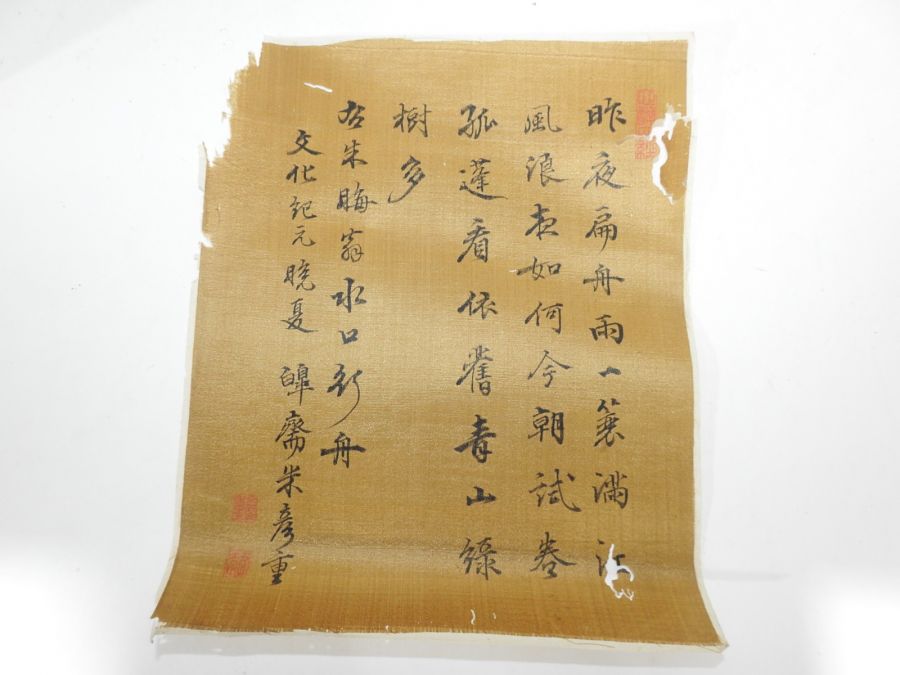 昨夜扁舟雨一蓑滿江
風浪夜如何今朝試卷
孤蓬看依舊青山綠
樹多
右朱晦翁水口行舟
文化紀元曉夏 齋朱彦重